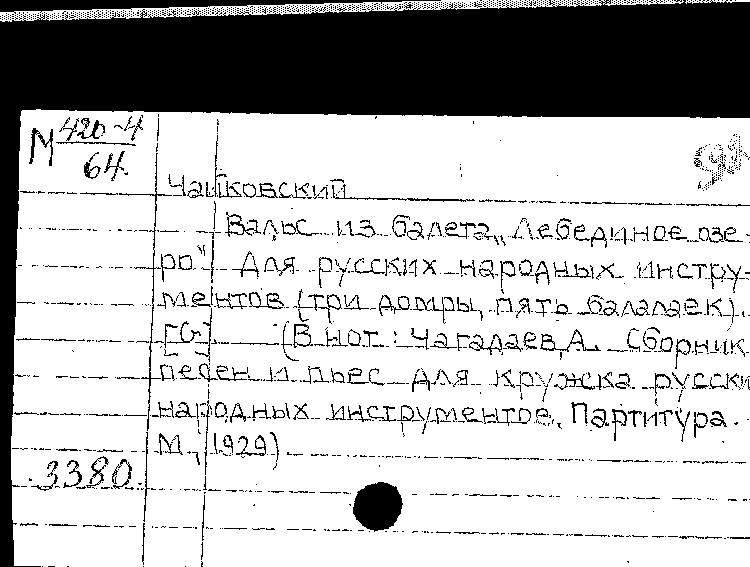 М 420-4
64.
Чайковский
Вальс из балета „Лебединое озе-
ро" Для русских народных инстру-
ментов (три домры, пять балалаек).
(В нот.: Чагадаев, А. Сборник
песен и пьес для кружка русски
народных инструментов. Партитура.
М., 1929).
3380.